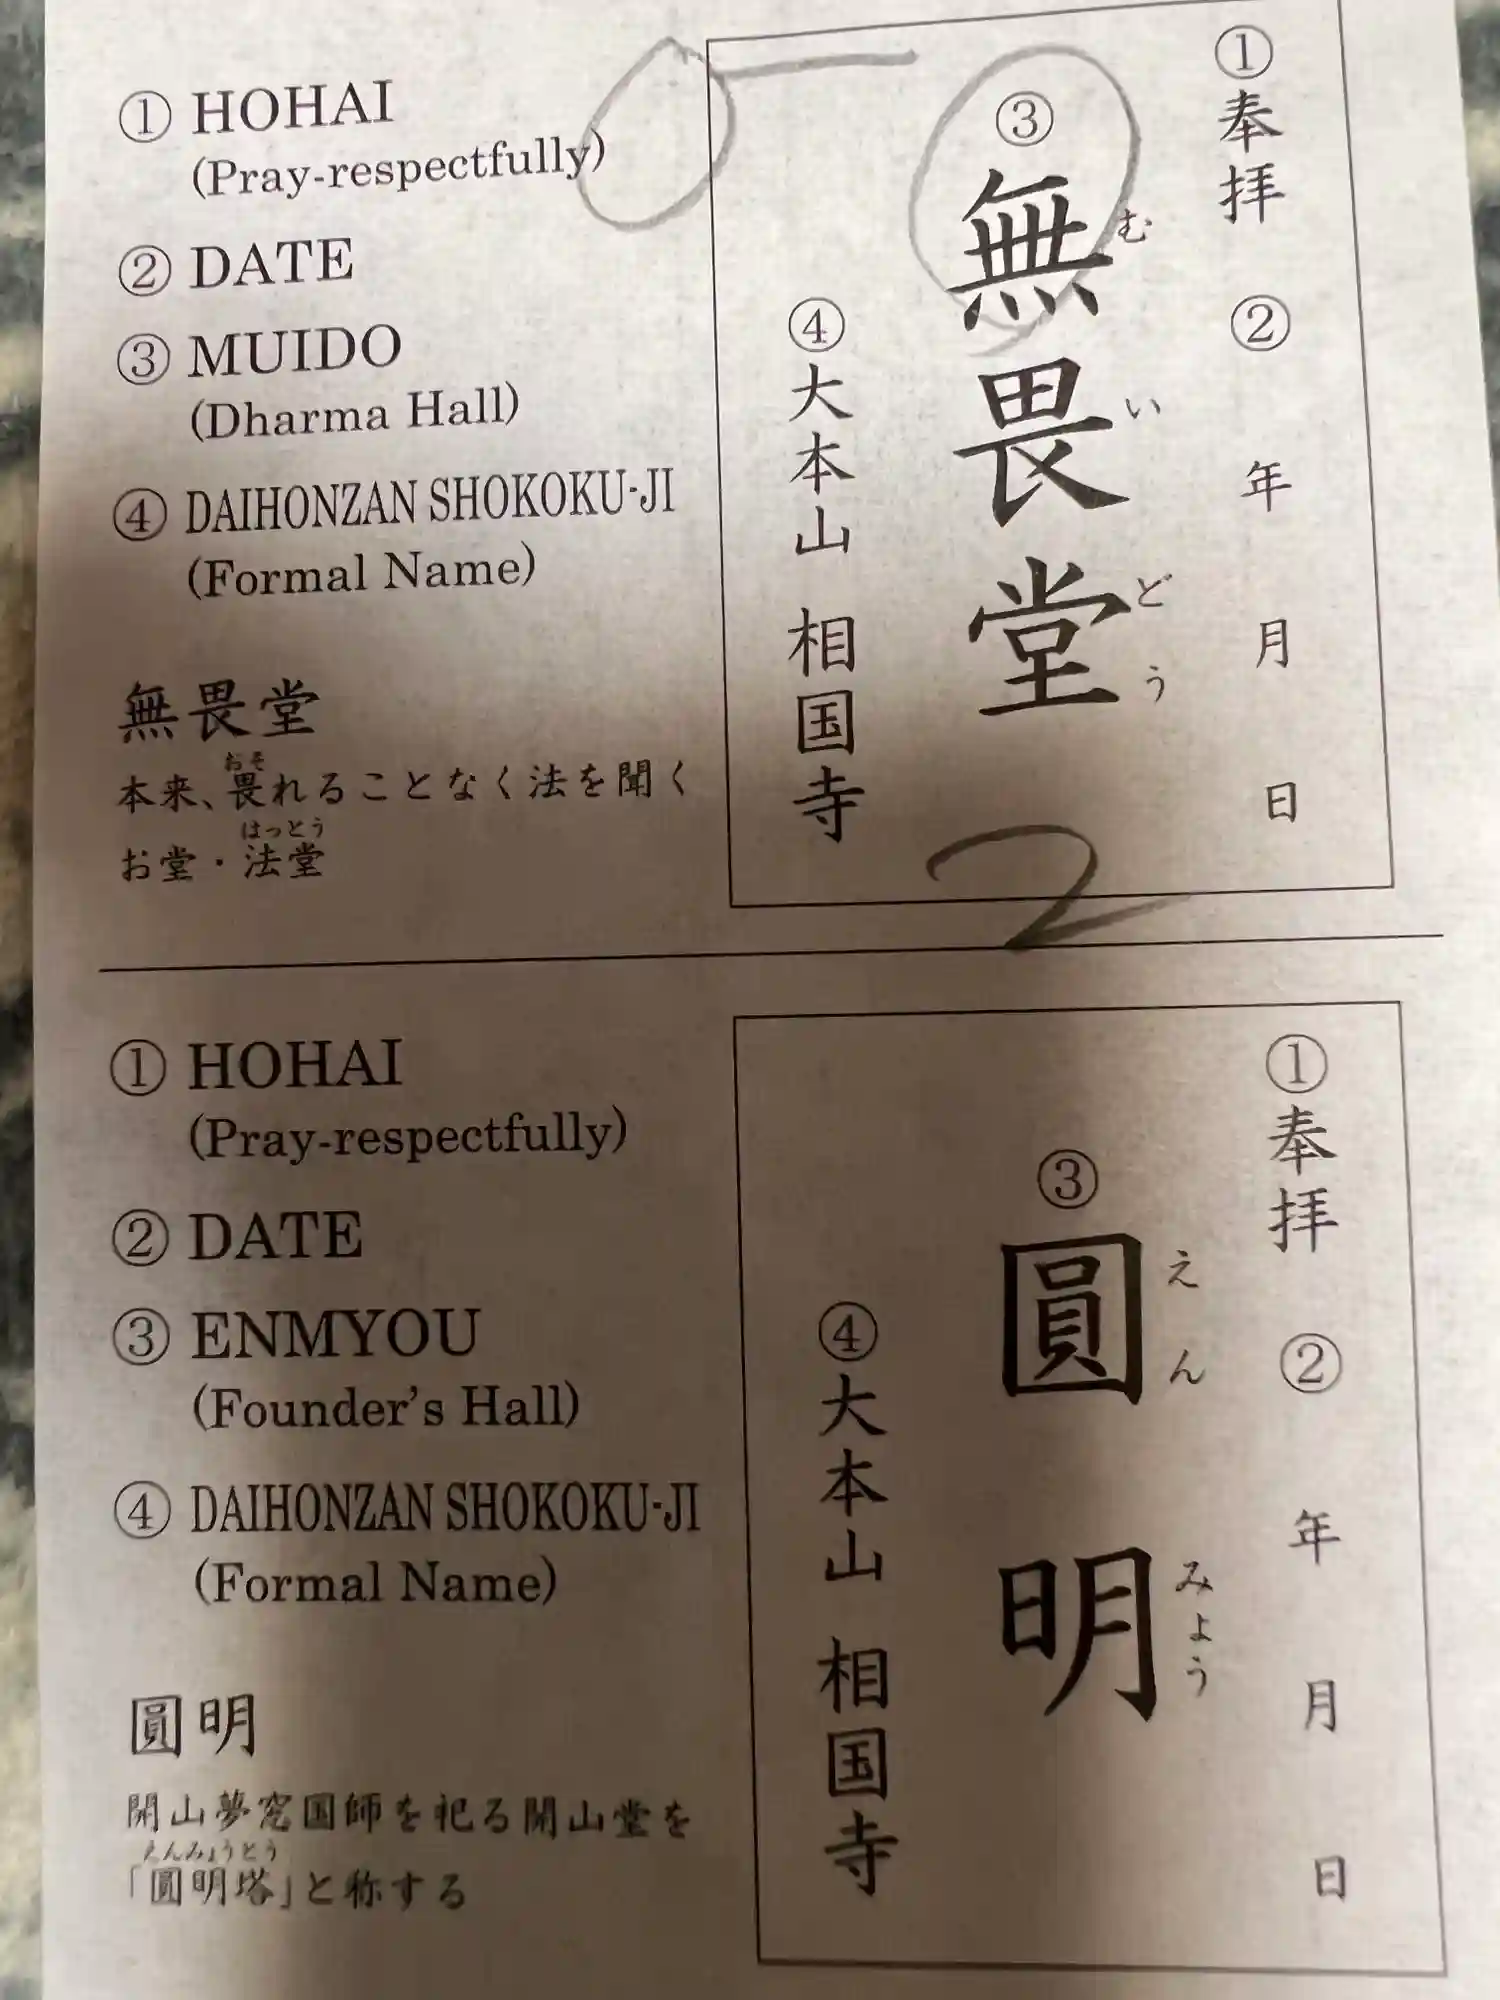 ① HOHAI
(Pray-respectfully)
② DATE
③ MUIDO
(Dharma Hall)
④ DAIHONZAN SHOKOKU-JI
(Formal Name)
無畏堂
おそ
本来、畏れることなく法を聞く
はっとう
お堂・法堂
①奉拝
② 年 月 日
③
無畏堂
むいどう
④大本山 相国寺
2
① HOHAI
(Pray-respectfully)
② DATE
③ ENMYOU
(Founder's Hall)
④ DAIHONZAN SHOKOKU-JI
(Formal Name)
圓明
開山夢窓国師を祀る開山堂を
えんみょうとう
「圓明塔」と称する
①奉拝
② 年 月 日
③
圓明
えんみょう
④大本山 相国寺